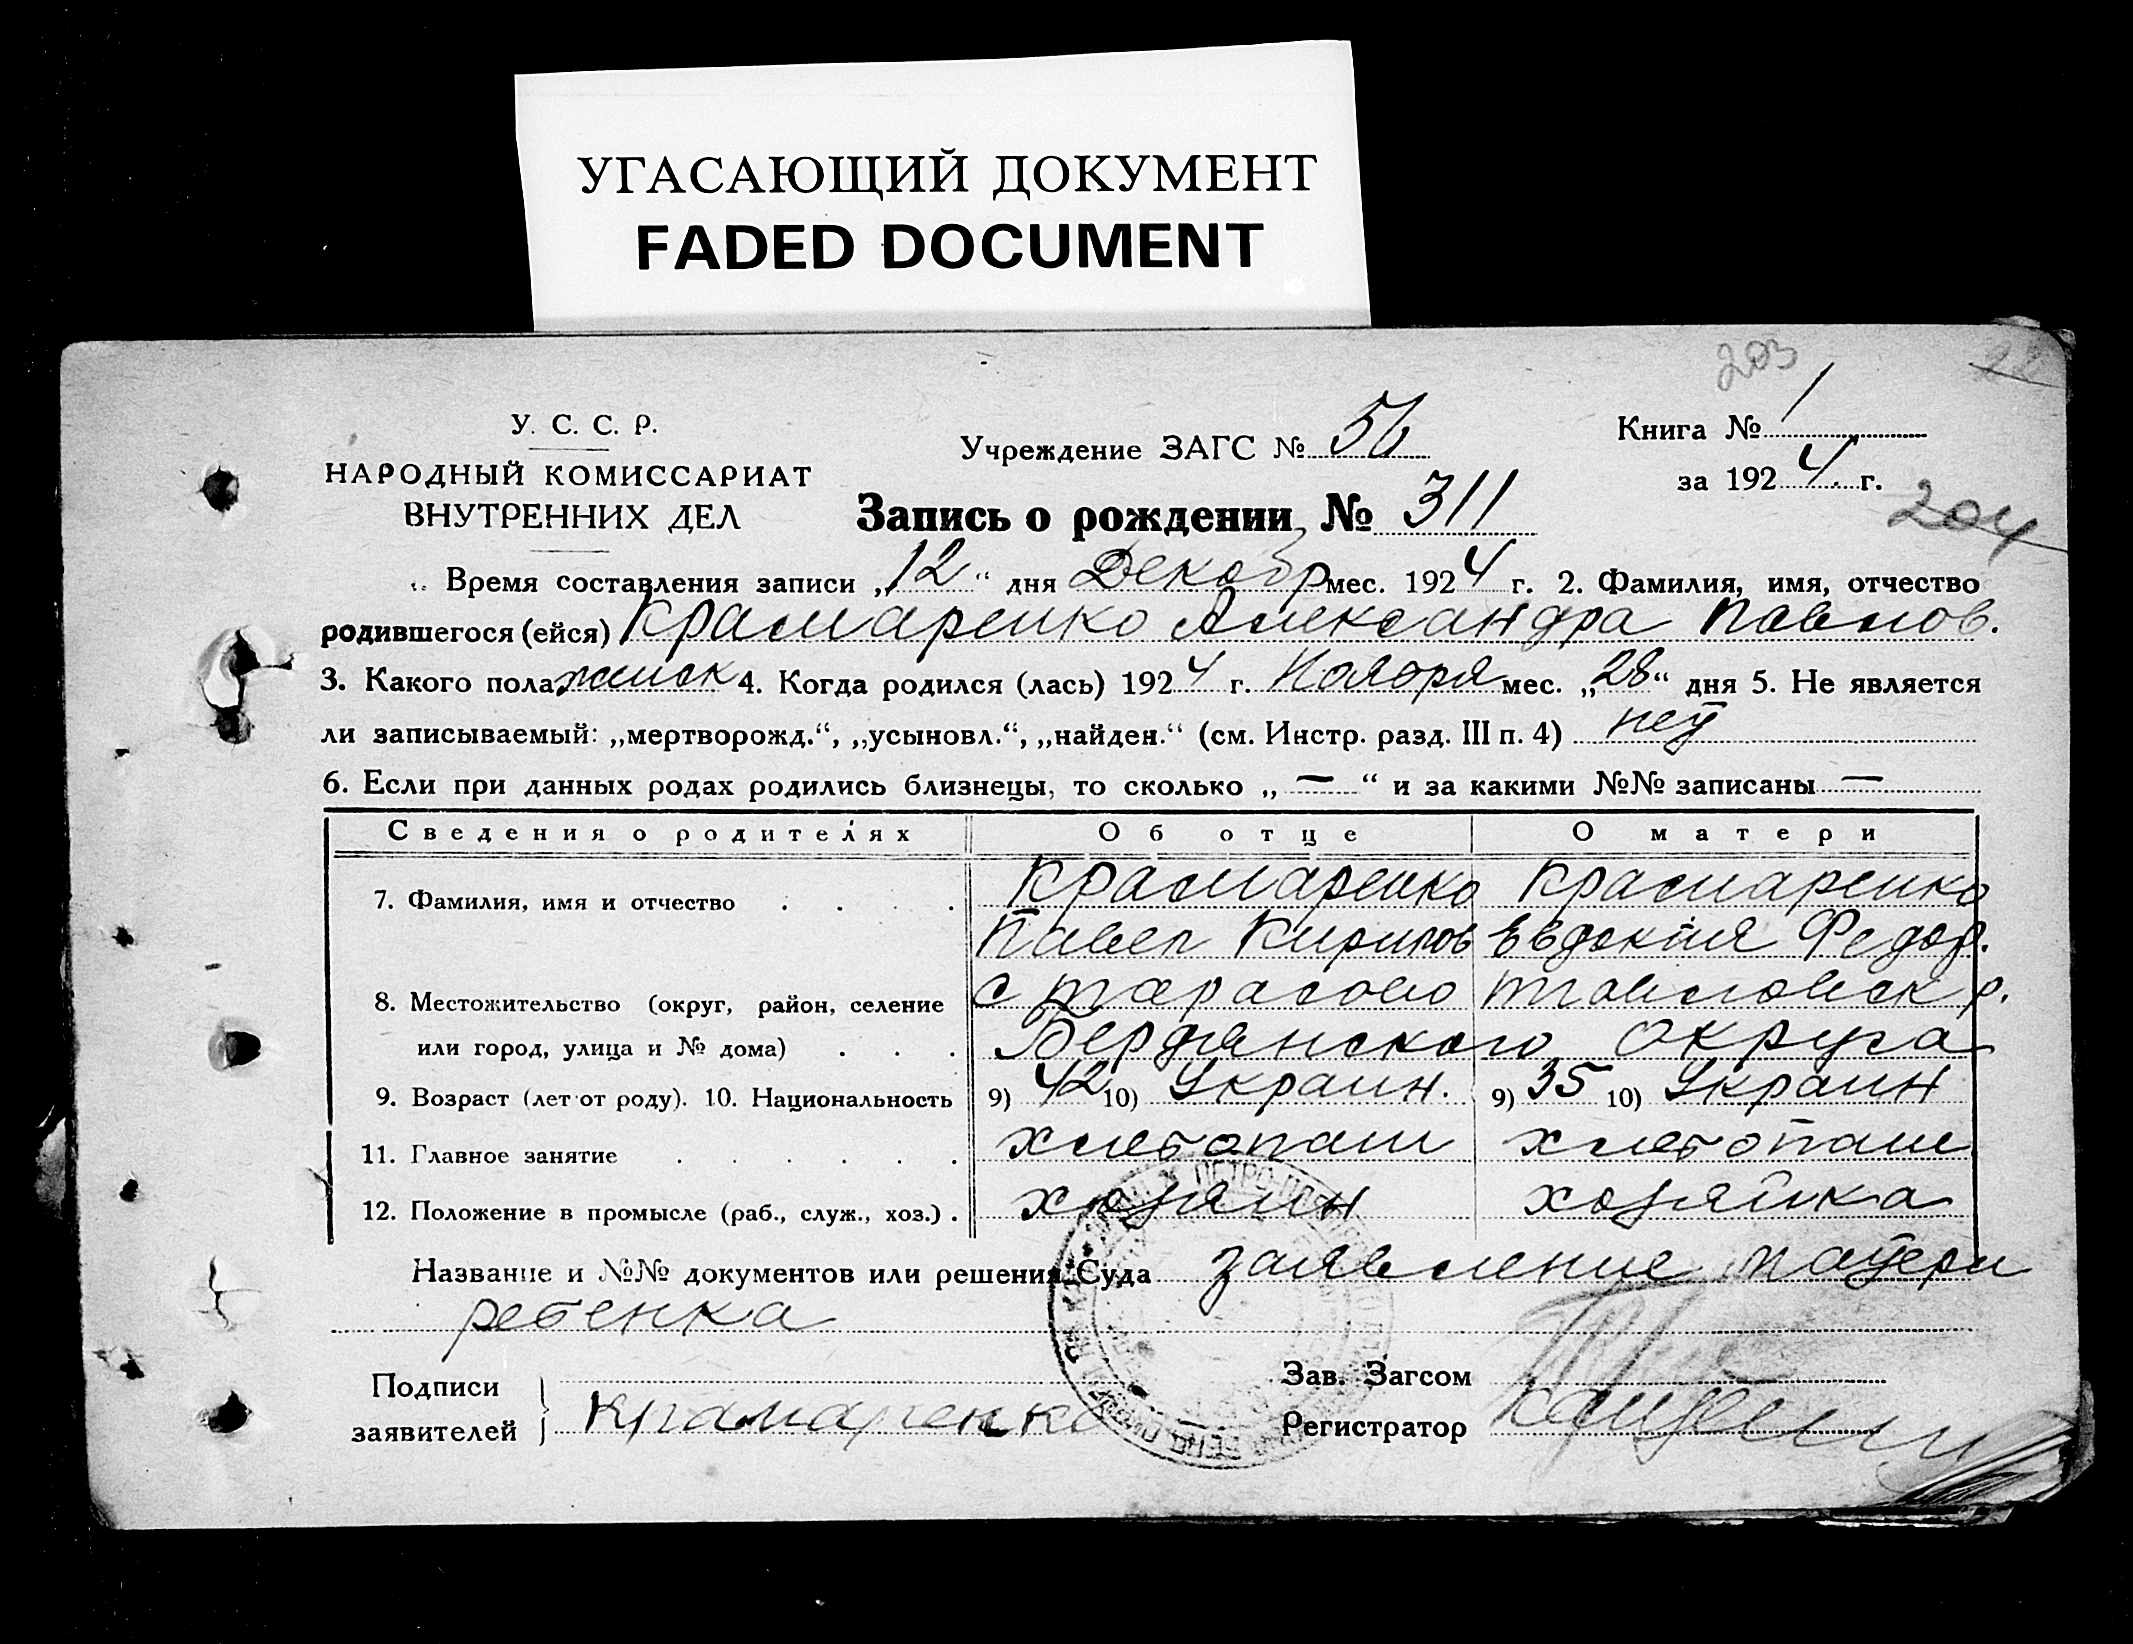 УГАСАЮЩИЙ ДОКУМЕНТ
FADED DOCUMENT
203
У. С. С. Р.
НАРОДНЫЙ КОМИССАРИАТ
ВНУТРЕННИХ ДЕЛ
Учреждение ЗАГС № 56
Книга № 1
за 1924 г.
204
Запись о рождении № 311
Время составления записи „12“ дня Декабр мес. 1924 г. 2. Фамилия, имя, отчество
родившегося (ейся) Крамаренко Александра Павлов.
3. Какого пола женск 4. Когда родился (лась) 1924 г. Ноября мес. „28“ дня 5. Не является
ли записываемый: „мертворожд.“, „усыновл.“, „найден.“ (см. Инстр. разд. III п. 4) нет
6. Если при данных родах родились близнецы, то сколько „—“ и за какими №№ записаны —
Сведения о родителях Об отце О матери
7. Фамилия, имя и отчество . . . . Крамаренко Крамаренко
Павел Кирилов Евдокия Федор.
8. Местожительство (округ, район, селение с р.
или город, улица и № дома) . . . Бердянского округа
9. Возраст (лет от роду). 10. Национальность 9) 42 10) Украин. 9) 35 10) Украин
11. Главное занятие . . . . . . хлебопаш хлебопаш
12. Положение в промысле (раб., служ., хоз.) . хозяин хозяйка
Название и №№ документов или решения Суда заявление матери
ребенка
Подписи
заявителей } Крамаренко
Зав. Загсом
Регистратор